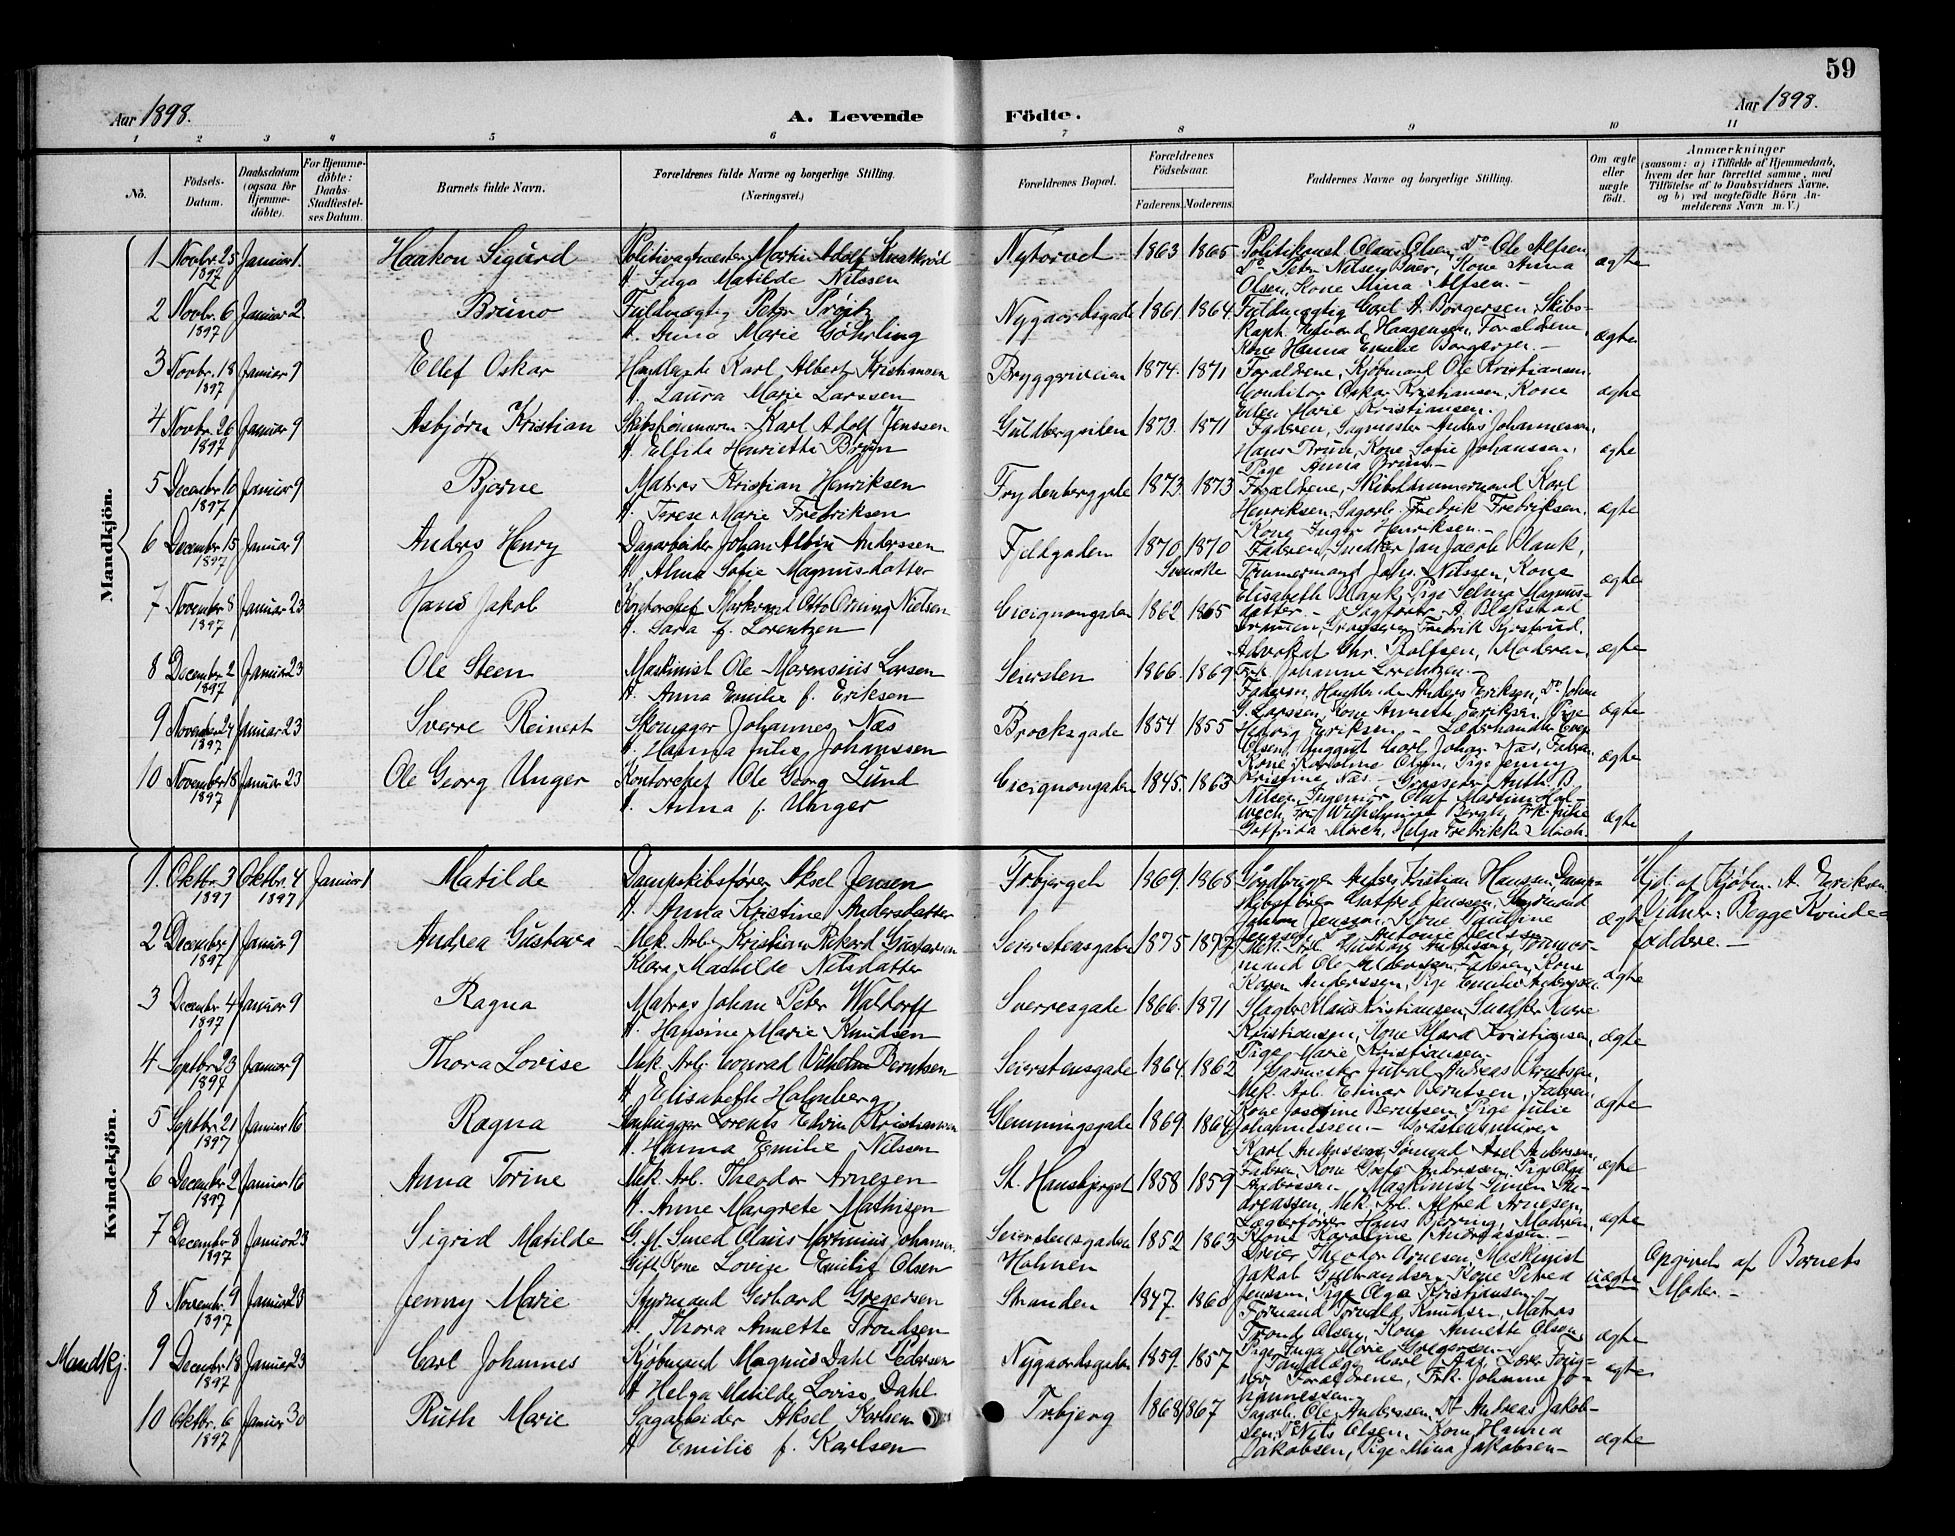 59
Aar 1898.
A. Levende Födte.
Aar 1898.
1 2 3 4 5 6 7 8 9 10 11
No.
Födsels-Datum.
Daabsdatum (ogsaa for Hjemme-döbte).
For Hjemme-döbte: Daabs-Stadfæstel-ses Datum.
Barnets fulde Navn.
Forældrenes fulde Navne og borgerlige Stilling. (Næringsvei.)
Forældrenes Bopæl.
Forældrenes Födselsaar.
Faderens. Moderens.
Faddernes Navne og borgerlige Stilling.
Om ægte eller uægte födt.
Anmærkninger (saasom: a) i Tilfælde af Hjemmedaab, hvem der har forrettet samme, med Tilföielse af to Daabsvidners Navne, og b) ved uægtefödte Börn An-melderens Navn m. V.)
Mandkjön.
1 Novbr. 25 1897 Januar 1. Haakon Sigurd Martin Adolf
H. Inga Matilde Nilssen
Nytorvet 1863 1865 Politikonst. Olaus Olsen, Do Ole Alfsen,
Do Peter Nilsen Buer, Kone Anna
Olsen, Kone Mina Alfsen. -
ægte
2 Novbr. 6 1897 Januar 2 Bruno Fuldmægtig Peter Pröitz
H. Anna Marie Göhrling
Nygaardsgade 1861. 1864. Fuldmægtig Carl A. Borgersen, Skibs-
kapt. Edvard Haagensen, Forældrene,
Kone Hanna Emilie Borgersen. -
ægte
3 Novbr. 18 1897 Januar 9 Ellef Oskar Handlende Karl Albert Kristiansen
H. Laura Marie Larssen
Bryggeriveien 1874. 1871 Forældrene, Kjöbmand Ole Kristiansen,
Conditor Oskar Kristiansen, Kone
Ellen Marie Kristiansen.
ægte
4 Novbr. 26 1897 Januar 9 Asbjörn Kristian Skibstömmerm. Karl Adolf Jenssen
H. Elfida Henriette Bruun
Guldbergsilen 1873. 1871 Faderen, Sagmester Anders Johannessen,
Hans Bruun, Kone Sofie Johanssen,
Pige Anna Bruun -
ægte
5 Decembr. 10 1897 Januar 9 Bjarne Matros Kristian Henriksen
H. Terese Marie Fredriksen
1873. 1873 Forældrene, Skibstömmermand Karl
Henriksen, Sagarb. Fredrik Fredriksen,
Kone Inger Henriksen. -
ægte
6 Decembr. 15 1897 Januar 9 Anders Henry Dagarbeider Johan Albin Anderssen
H. Alma Sofie Magnusdatter
Fjeldgaden 1870 1870
Svenske
Faderen, Smed Jan Jacob Blank,
Tömmermand Johs. Nilssen, Kone
Elisabeth Blank, Pige Selma Magnus-
datter. -
ægte
7 November 8 1897 Januar 23 Hans Jakob Otto Nielsen
H. Sara f. Lorentzen
Cicignongaden 1862 1865 Sagförer A. Blakstad
Fredrik
Advokat Chr. Rolfsen, Moderen,
Frk. Johanne Lorentzen. -
ægte
8 Decembr. 2 1897 Januar 23 Ole Steen Maskinist Ole Marensius Larsen
H. Anna Emilie f. Eriksen
Seiersten 1866. 1869 Faderen, Handlende Anders Eriksen, Do Johan
S. Larssen, Kone Annette Eriksen, Pige
Hedvig Eriksen -
ægte
9 November 24 1897 Januar 23 Sverre Reinert Skomager Johannes Næs
H. Hanna Julie Johanssen
Brocksgade 1854 1855 Læderhandler
Olsen, Ungggut Carl Johan Næs, Faderen,
Kone Karoline Olsen, Pige Jenny
Kristine Næs. -
ægte
10 November 18 1897 Januar 23 Ole Georg Unger Kontorchef Ole Georg Lund
H. Anna f. Unger
Cicignongaden 1845. 1863 Grosserer Anth. B.
Nilsen, Ingeniör Olaf Martin
Fru Wilhelmine Bergh, Frk. Julie
Gotfrida Mörch, Helga Fredrikke Mörch.
ægte
Kvindekjön.
1. Oktbr. 3 1897 Oktbr. 4 1897 Januar 1 Matilde Dampskibsförer Aksel Jensen
H. Anna Kristine Andersdatter
Trbjerget 1869. 1868 Gaardbruger Anders Kristian Hanssen, Damp-
Johan Jensen, Kone Pauline
ægte
Hjd. af Kjöbm. A. Eriksen.
Vidner: Begge Kvinde-
faddere. -
2 Decembr. 1 1897 Januar 9 Andrea Gustava Mek. Arb. Kristian Rikard Gustavsen
Klara Mathilde Nilsdatter
Seierstensgade 1875 1877
mand Ole Anderssen, Faderen, Kone
Karen Anderssen, Pige Emilie Anderssen.
ægte
3 Decembr. 4 1897 Januar 9 Ragna Matros Johan Peter Waldorff
H. Hansine Marie Knudsen
Sverresgade 1866. 1871 Slagter Klaus Kristiansen,
Kristiansen, Kone Klara Kristiansen,
Pige Marie Kristiansen.
ægte
4 Septbr. 23 1897 Januar 9 Thora Lovise Mek. Arb. Conrad Vilhelm Berntsen
H. Elisabeth Holmberg
Seierstensgade 1864. 1862 Gasmester Juval Andreas Berntsen,
Mek. Arb. Einar Berntsen, Faderen,
Kone Josefine Berntsen, Pige Julie
Johannessen. -
ægte
5 Septbr. 21 1897 Januar 16 Ragna Stenhugger Lorents Edvin Kristiansen
H. Hanna Emilie Nilssen
Glemmingegade 1869. 1864
Karl Anderssen, Sömand Axel Anderssen,
Faderen, Kone Grete Anderssen, Pige Olga
Anderssen. -
ægte
6 Decembr. 2 1897 Januar 16 Anna Torine Mek. Arb. Theodor Arnesen
H. Anne Margrete Mathisen
St. Hansbjerget 1858 1859 Maskinist Simen An-
dreassen, Mek. Arb. Alfred Arnesen,
Hans Bjerring, Moderen,
Kone Karoline Andreassen. -
ægte
7 Decembr. 8 1897 Januar 23 Sigrid Matilde G. M. Smed Olaus Martinius Johansen.
Gift Kone Lovise Emilie Olsen
Seierstensgaden
Holmen
1852 1863 Dreier Theodor Arnesen, Maskinist
Jakob Gulbrandsen, Kone Petrea
Jenssen, Pige Olga Kristiansen.
uægte
Opgivet af Barnets
Moder. -
8 Novembr. 9 1897 Januar 23 Jenny Marie Styrmand Gerhard Gregersen
H. Thora Annette Trondsen
Stranden 1847. 1860 Formand Torvald Knudsen, Matros
Trond Olsen, Kone Annette Olsen,
Pige Inga Marie Gregersen.
ægte
Mandkj. 9 Decembr. 18 1897 Januar 23 Carl Johannes Kjöbmand Magnus Dahl Pedersen
H. Helga Matilde Lovise Dahl
Nygaardsgaden 1859. 1857 Tandlæge Carl
Forældrene, Frk. Johanne Jo-
hannessen. -
ægte
10 Oktbr. 6 1897 Januar 30 Ruth Marie Sagarbeider Aksel Karlsen
H. Emilie f. Karlsen
Trbjerg 1868 1867 Sagarb. Ole Anderssen, Do Andreas Jakob-
sen, Do Nils Olsen, Kone Hanna
Jakobsen, Pige Mina Jakobsen -
ægte